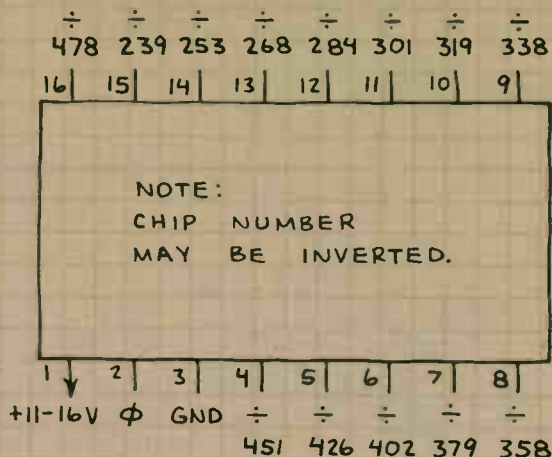 ÷ ÷ ÷ ÷ ÷ ÷ ÷ ÷
478 239 253 268 284 301 319 338
16 15 14 13 12 11 10 9
NOTE:
CHIP NUMBER
MAY BE INVERTED.
1 2 3 4 5 6 7 8
+11-16V Φ GND ÷ ÷ ÷ ÷ ÷
451 426 402 379 358